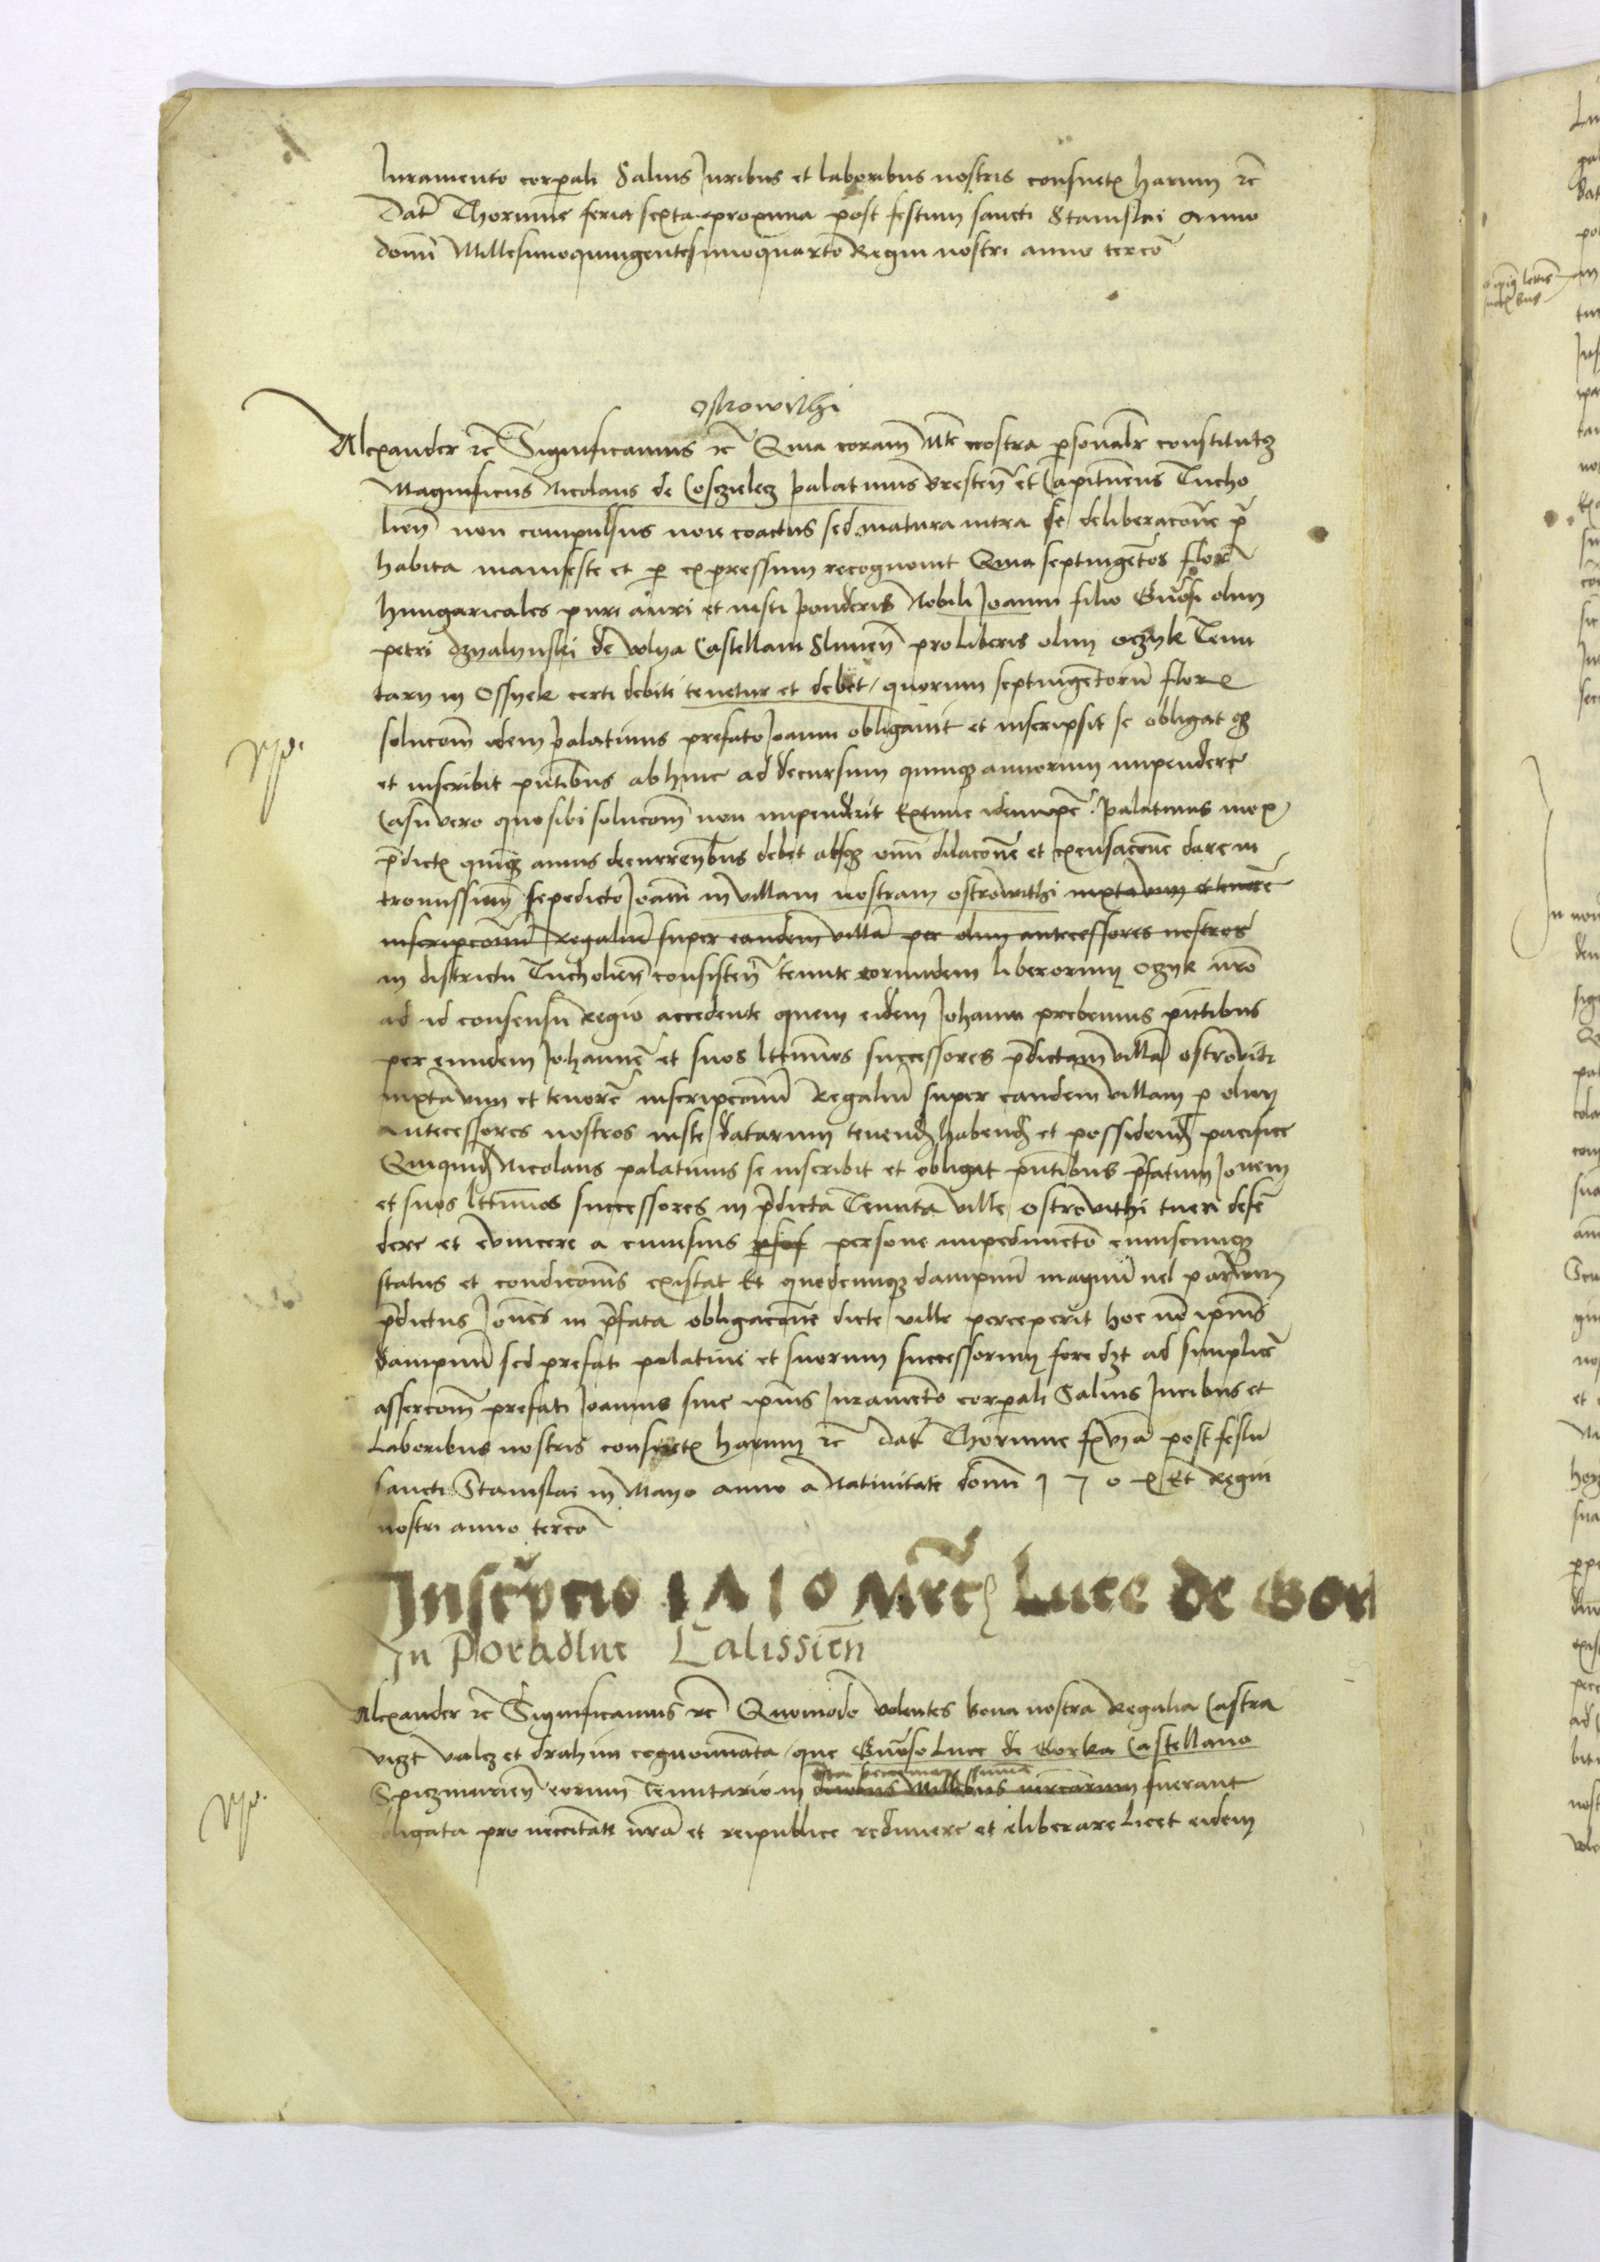 Iuramento corporali Salvis Iuribus et laboribus nostris consuetis harum etc
Datum Thorunie feria sexta proxima post festum sancti Stanislai Anno
domini Millesimoquingentesimoquarto Regni nostri anno tercio
Ostrowithi
Alexander etc Significamus etc Quia coram Mte nostra personaliter constitutus
Magnificus Nicolaus de Cosczielecz palatinus Bresten et Capitaneus Tucho
lien non compulsus nec coactus sed matura intra se deliberacione pre
habita manifeste et per expressum recognovit Quia septingentos flor
hungaricales puri auri et iusti ponderis Nobili Joanni filio Gnosi olim
petri dzyalynski de Wlya Castellani Slunen pro liberis olim oczyk Tenu
tarii in Ossyek certi debiti tenetur et debet / quorum septingentorum flor
solucionem idem palatinus prefato Joanni obligavit et inscripsit se obligatque
et inscribit presentibus abhinc ad decursum quinque annorum impendere
Casu vero quo sibi solucionem non impenderit Extunc idem palatinus mox
predictis quinque annis decurrentibus debet absque omni dilacione et excusacione dare in
tromissionem sepedicto Joanni in villam nostram ostrowithi iuxta vim et tenore
inscripcionum Regalium super eandem villam per olim antecessores nostros
in districtu Tucholien consisten tenute eorundem liberorum oczyk nostro
ad id consensu Regio accedente quem eidem Johanni prebemus presentibus
per eundem Johannem et suos legittimos successores predictam villam ostroviti
iuxta vim et tenore inscripcionum Regalium super eandem villam per olim
antecessores nostros iuste datarum tenend habend et possidend pacifice
Quiquid Nicolaus palatinus se inscribit et obligat presentibus prefatum Joannem
et suos legittimos successores in predicta Tenuta ville ostrovithi tueri defen
dere et evincere a cuiusvis persone impedimento cuiuscumque
status et condicionis existat Et quodcumque dampnum magnum vel parvum
predictus Joannes in prefata obligacione dicte ville perceperit hoc non ipsius
dampnum sed prefati palatini et suorum successorum fore debet ad simplicem
assercionem prefati Joannis sine ipsius Iuramento corporali Salvis Iuribus et
Laboribus nostris consuetis harum etc Datum Thorunie f vja post festum
Sancti Stanislai in Mayo anno a Nativitate domini Et Regni
nostri anno tercio
Inscripcio Mrc Luce de Gor
In Poradlne Calissien
Alexander etc Significamus etc Quomodo volentes bona nostra Regalia Castra
vizt Valcz et drahim cognominata / que Gnoso Luce de Gorka Castellano
Spiczmirien eorum Tenutario in duobus Millibus mrcarum fuerant
obligata pro neccitate nra et reipublice redimere et eliberare Licet eidem